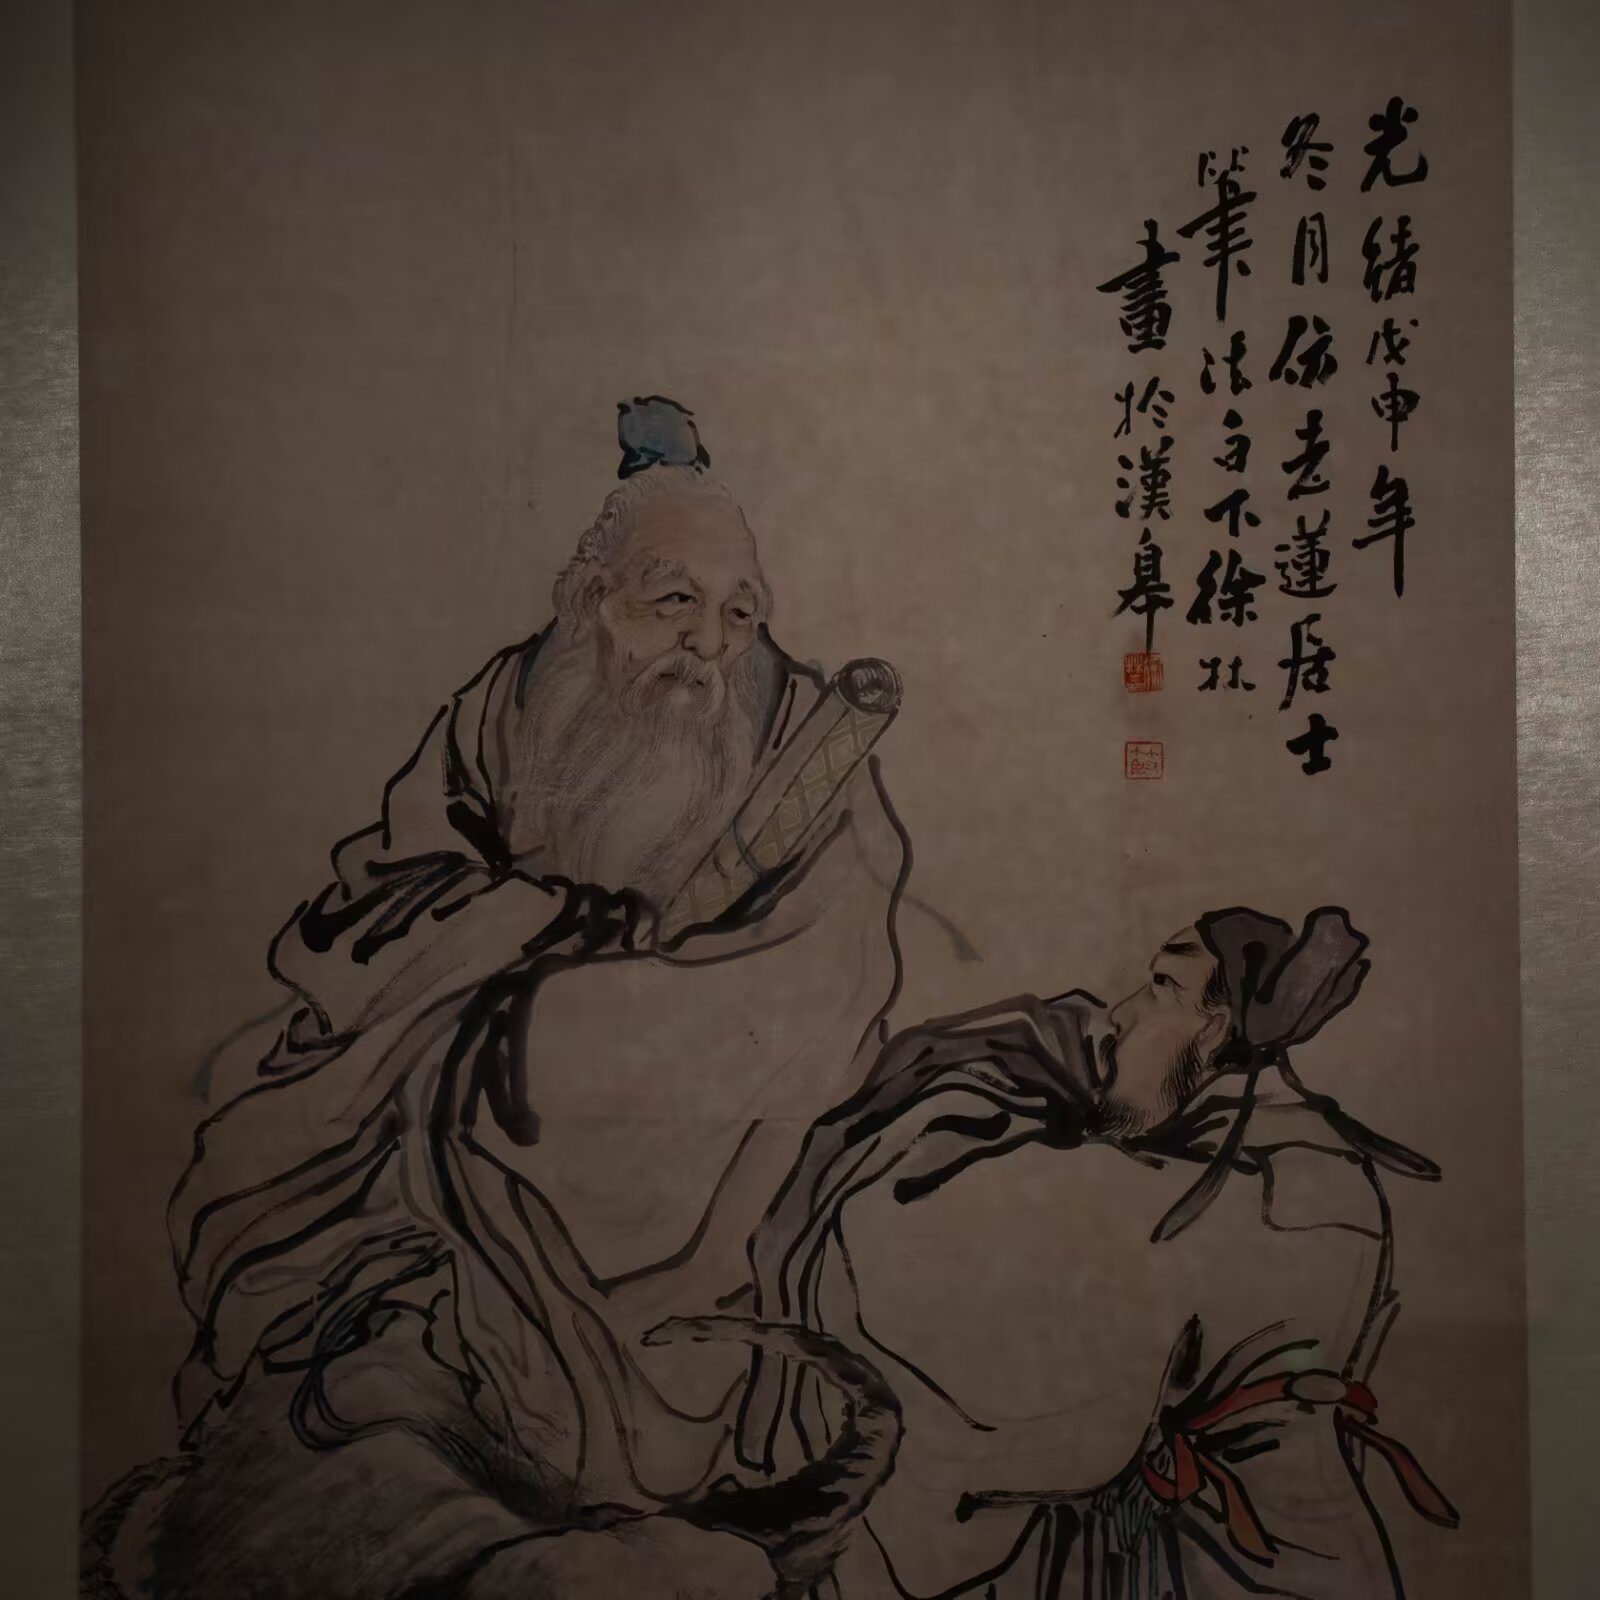 光緒戊申年
冬月仿去蓮居士
筆法白下徐林
畫於漢皋